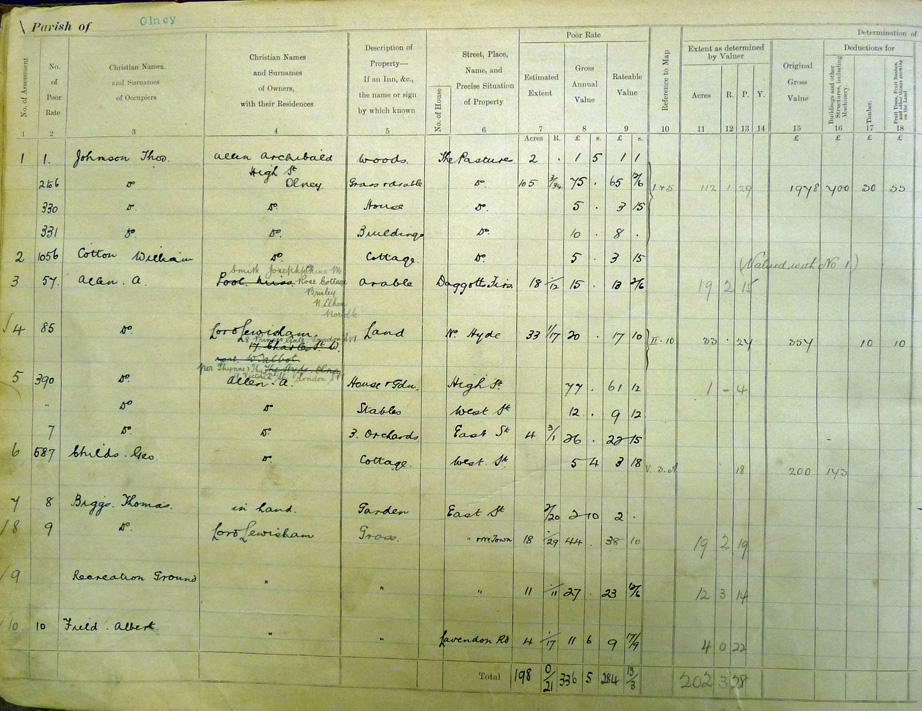 Parish of Olney
Determination of
No. of Assessment
No. of Poor Rate
Christian Names and Surnames of Occupiers
Christian Names and Surnames of Owners, with their Residences
Description of Property— If an Inn, &c., the name or sign by which known
No. of House
Street, Place, Name, and Precise Situation of Property
Poor Rate
Estimated Extent
Gross Annual Value
Rateable Value
Reference to Map
Extent as determined by Valuer
Acres R. P. Y.
Original Gross Value
Deductions for
Buildings and other Structures, including Machinery.
Timber.
Fruit Trees, Fruit Bushes, and other things growing on the Land
1 2 3 4 5 6 7 8 9 10 11 12 13 14 15 16 17 18
Acres R. £ s. £ s. £ £ £ £
1 1. Johnson Thos. Allen Archibald Woods. The Pastures 2 . 1 5 1 1
High St
266 Do Olney Grass & arable Do 105 75 . 65 112 1 29 1978 400 50 55
330 Do Do House Do 5 . 3 15
331 Do Do Buildings Do 10 . 8 .
2 1056 Cotton William Do Cottage Do 5 . 3 15
(Valued with No 1.)
3 57. Allen. A. Smith Joseph Rose Cottage Arable 18 15 . 13 19 2 15
4 85 Do Lord Lewisham Land No Hyde 33 20 . 17 10 II.10 33 . 24 354 10 10
17 Charles St
W. Talbot
5 390 Do Allen. A. House & Gdn. High St 77 . 61 12 1 - 4
- Do Do Stables West St 12 . 9 12
7 Do Do 3. Orchards East St 4 26 . 22 15
6 587 Childs. Geo Do Cottage. West St 5 4 3 18 18 200 143
7 8 Biggs. Thomas. in hand. Garden East St 2 10 2 .
8 9 Do Lord Lewisham Grass. " 18 44 . 38 10 19 2 19
9 Recreation Ground " " " 11 27 . 23 12 3 14
10 10 Field. Albert. " " Lavendon Rd 4 11 6 9 4 0 22
Total 198 0/21 336 5 284 13/3 202 3 28